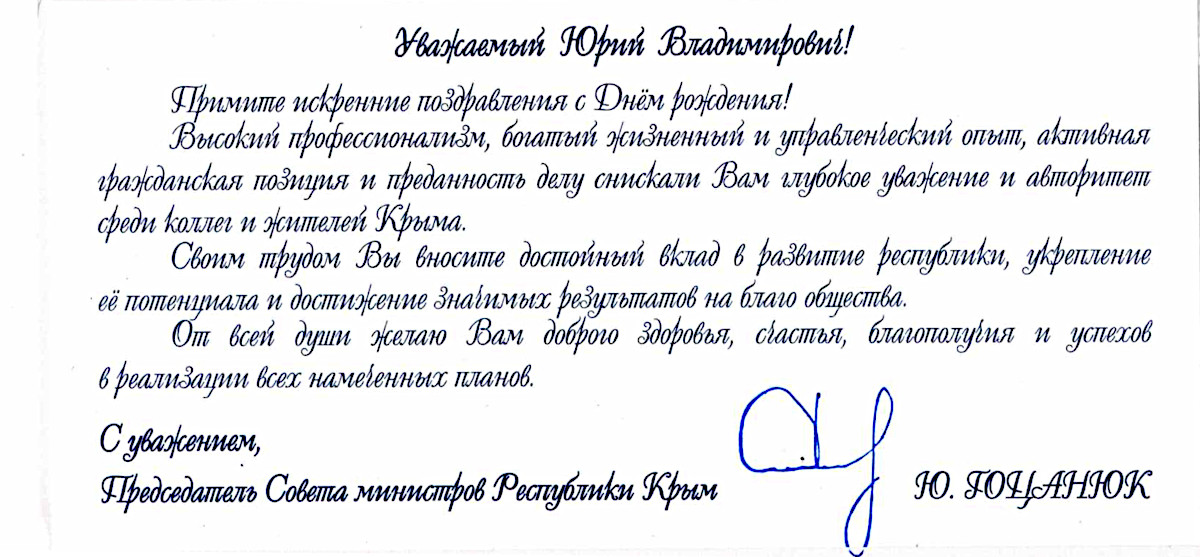 Уважаемый Юрий Владимирович!
Примите искренние поздравления с Днём рождения!
Высокий профессионализм, богатый жизненный и управленческий опыт, активная
гражданская позиция и преданность делу снискали Вам глубокое уважение и авторитет
среди коллег и жителей Крыма.
Своим трудом Вы вносите достойный вклад в развитие республики, укрепление
её потенциала и достижение значимых результатов на благо общества.
От всей души желаю Вам доброго здоровья, счастья, благополучия и успехов
в реализации всех намеченных планов.
С уважением,
Председатель Совета министров Республики Крым Ю. ГОЦАНЮК